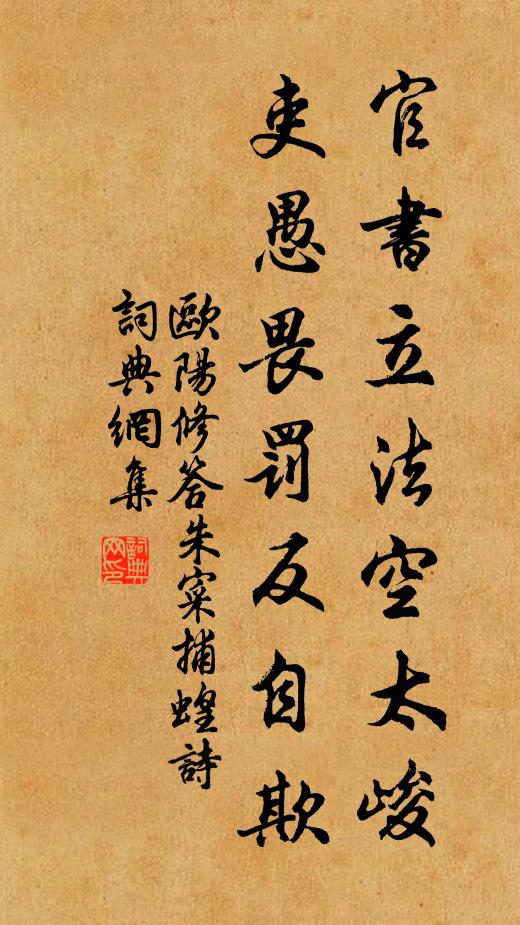 官書立法空太峻
吏愚畏罰反自欺
歐陽修答朱寀捕蝗詩
詞典網集
詞典
网印